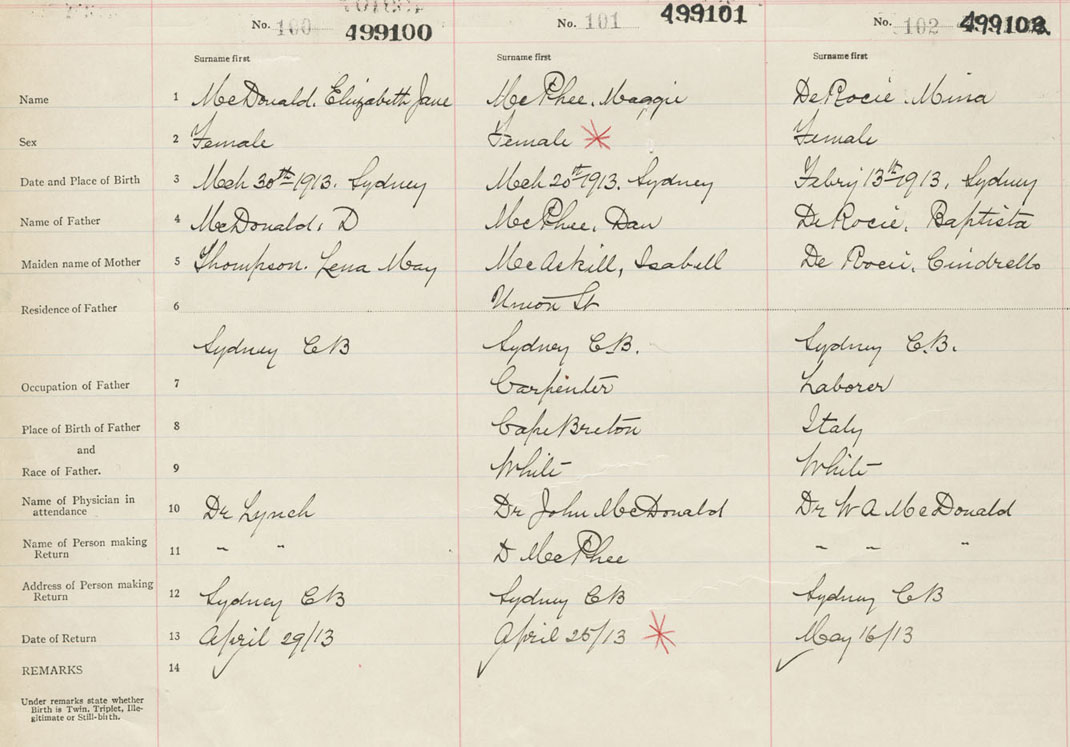 No. 100 499100 No. 101 499101 No. 102 499102.
Surname first Surname first Surname first
Name 1 McDonald. Elizabeth Jane McPhee. Maggie DeRocie. Mina
Sex 2 Female Female Female
Date and Place of Birth 3 Mch 30th 1913. Sydney Mch 20th 1913. Sydney Febry 13th 1913, Sydney
Name of Father 4 McDonald, D McPhee, Dan DeRocie, Baptista
Maiden name of Mother 5 Thompson. Lena May McAskill, Isabell De Rocie, Cindrello
Residence of Father 6 Union St
Sydney CB Sydney C.B. Sydney C.B.
Occupation of Father 7 Carpenter Laborer
Place of Birth of Father 8 Cape Breton Italy
and
Race of Father. 9 White White
Name of Physician in
attendance 10 Dr Lynch Dr John McDonald Dr W A McDonald
Name of Person making
Return 11 " " D McPhee " " "
Address of Person making
Return 12 Sydney CB Sydney CB Sydney CB
Date of Return 13 April 29/13 April 25/13 May 16/13
REMARKS 14
Under remarks state whether
Birth is Twin, Triplet, Ille-
gitimate or Still-birth.